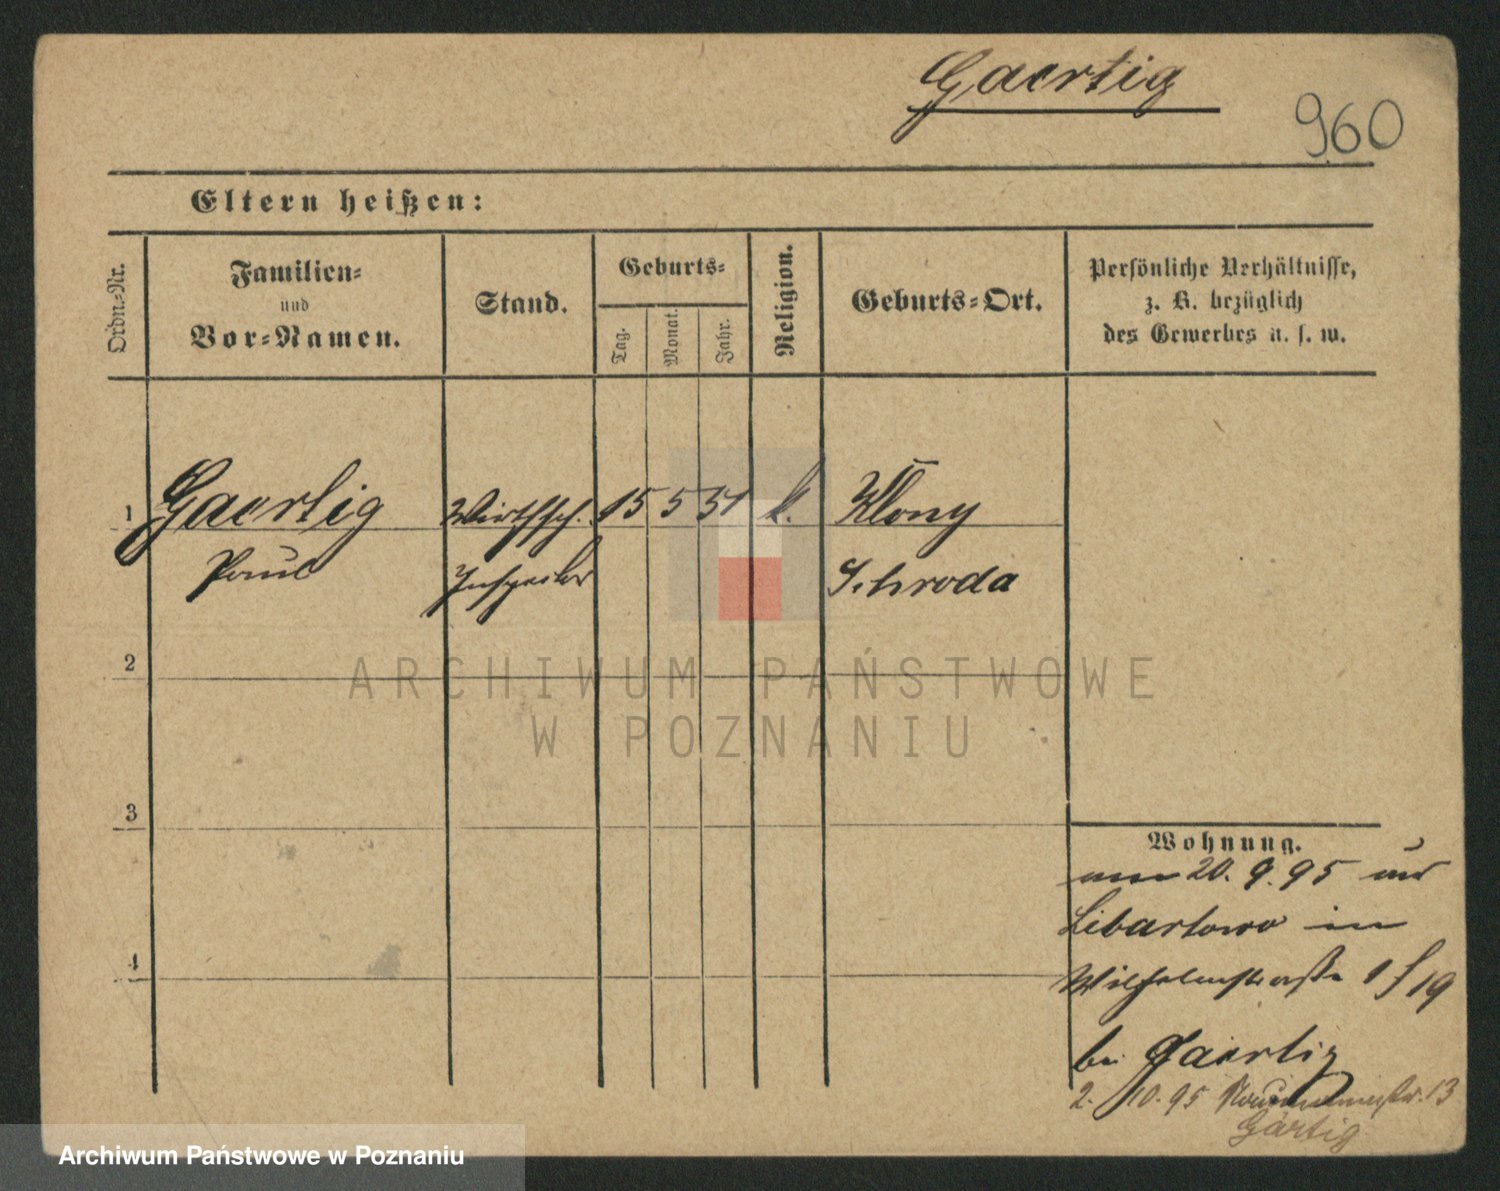 Gaertig
960
Eltern heißen:
Ordn.-Nr.
Familien-
und
Vor-Namen.
Stand.
Geburts-
Tag.
Monat.
Jahr.
Religion.
Geburts-Ort.
Persönliche Verhältnisse,
z. B. bezüglich
des Gewerbes u. s. w.
1 Gaertig Wirthsch. 15 5 51 k. Klony
Paul Inspector Schroda
2
ARCHIWUM PAŃSTWOWE
W POZNANIU
3
4
Wohnung.
am 20. 9. 95 aus
Libartowo in
Wilhelmstraße 19
bei Gaertig
2. 10. 95 13
Gärtig
Archiwum Państwowe w Poznaniu